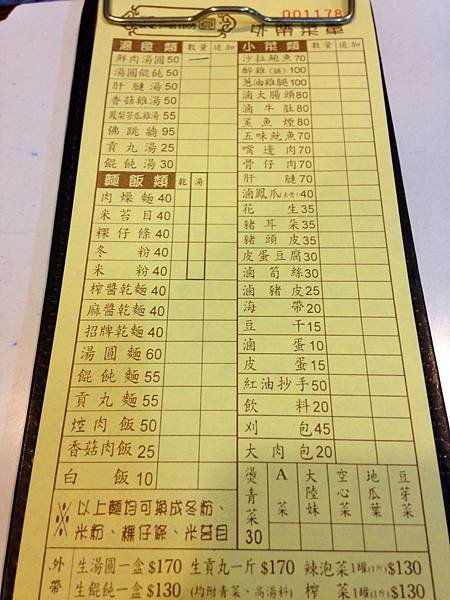 001178
外帶菜單
湯食類 數量 追加
鮮肉湯圓50 一
湯圓餛飩50
肝腱湯50
香菇雞湯50
鳳梨苦瓜雞湯55
佛跳牆95
貢丸湯25
餛飩湯30
麵飯類 乾 湯
肉燥麵40
米苔目40
粿仔條40
冬粉40
米粉40
榨醬乾麵40
麻醬乾麵40
招牌乾麵40
湯圓麵60
餛飩麵55
貢丸麵55
焢肉飯50
香菇肉飯25
白飯10
※以上麵均可換成冬粉、
米粉、粿仔條、米苔目
小菜類 數量 追加
沙拉鮑魚70
醉雞(腿)100
蔥油雞(腿)100
滷大腸頭80
滷牛肚80
鯊魚煙80
五味魷魚70
嘴邊肉70
骨仔肉70
肝腱70
滷鳳爪 40
花生35
豬耳朵35
豬頭皮35
皮蛋豆腐30
滷筍絲30
滷豬皮25
海帶20
豆干15
滷蛋10
皮蛋15
紅油抄手50
飲料20
刈包45
大肉包20
燙青菜30 A菜 大陸妹 空心菜 地瓜葉 豆芽菜
外帶 生湯圓一盒$170 生貢丸一斤$170 辣泡菜1罐(1斤)$130
生餛飩一盒$130 (均附青菜、高湯料) 榨菜1罐(1斤)$130